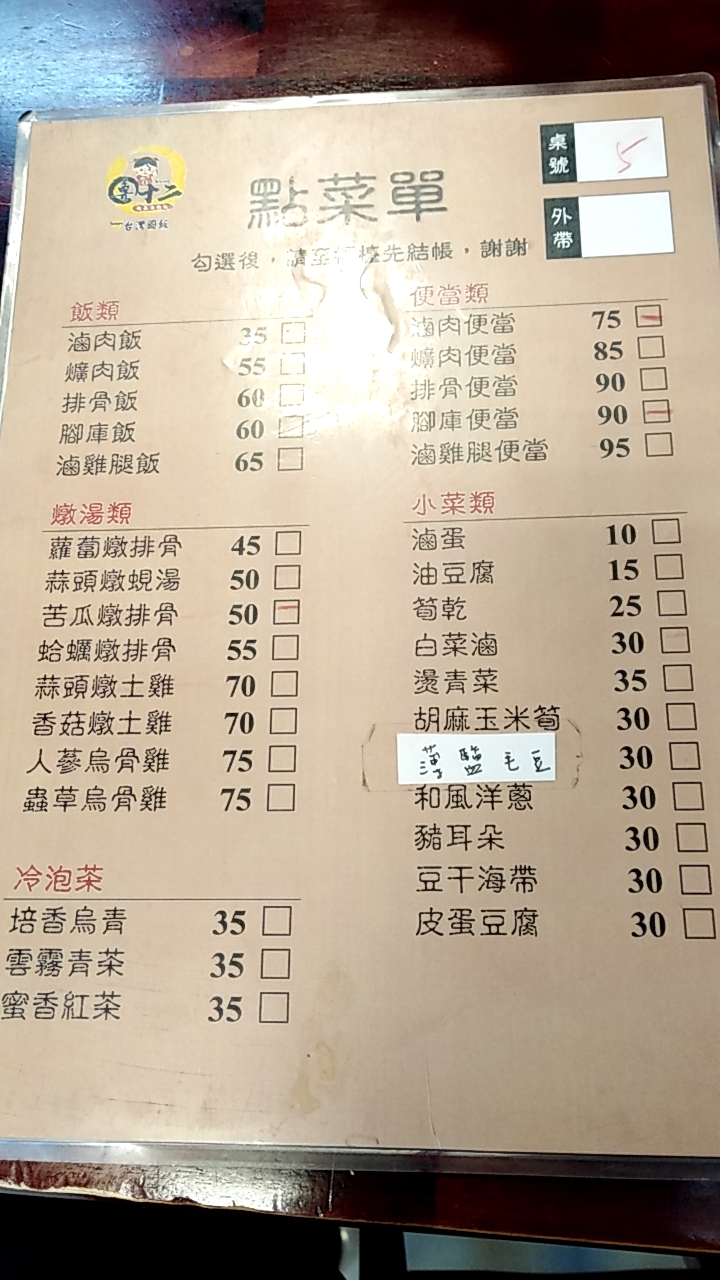 桌號 5
十二
台灣囡飯
點菜單
外帶
勾選後，請至櫃檯先結帳，謝謝
飯類
滷肉飯 35
爌肉飯 55
排骨飯 60
腳庫飯 60
滷雞腿飯 65
燉湯類
蘿蔔燉排骨 45
蒜頭燉蜆湯 50
苦瓜燉排骨 50
蛤蠣燉排骨 55
蒜頭燉土雞 70
香菇燉土雞 70
人蔘烏骨雞 75
蟲草烏骨雞 75
冷泡茶
培香烏青 35
雲霧青茶 35
蜜香紅茶 35
便當類
滷肉便當 75
爌肉便當 85
排骨便當 90
腳庫便當 90
滷雞腿便當 95
小菜類
滷蛋 10
油豆腐 15
筍乾 25
白菜滷 30
燙青菜 35
胡麻玉米筍 30
薄鹽毛豆 30
和風洋蔥 30
豬耳朵 30
豆干海帶 30
皮蛋豆腐 30